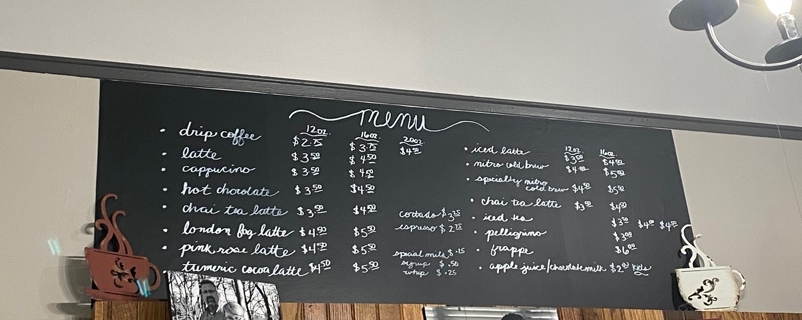 menu
12oz. 16oz 20oz
• drip coffee $2.75 $3.75 $4.50
• latte $3.50 $4.50
• cappucino $3.50 $4.50
• hot chocolate $3.50 $4.50
• chai tea latte $3.50 $4.50
• london fog latte $4.50 $5.50
• pink rose latte $4.50 $5.50
• tumeric cocoa latte $4.50 $5.50
cortado $3.75
espresso $2.75
special milk $.75
syrup $.50
whip $.25
12oz. 16oz.
• iced latte $3.50 $4.50
• nitro cold brew $4.00 $5.00
• specialty nitro
cold brew $4.50 $5.50
• chai tea latte $3.50 $4.50
• iced tea $3.00 $4.00
• pelligrino $3.00
• frappe $6.00
• apple juice/chocolate milk $2.00 kids